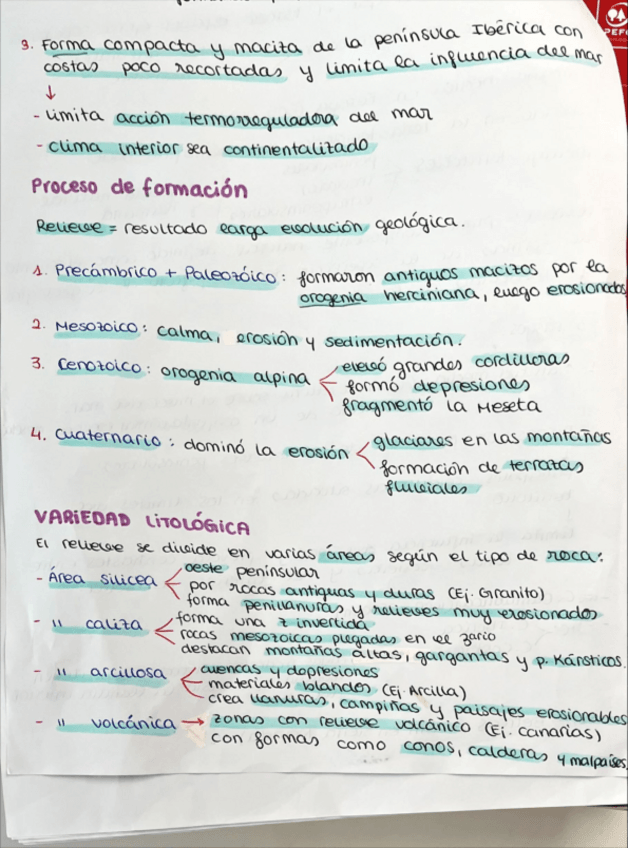 3. Forma compacta y maciza de la península Ibérica con
costas poco recortadas y limita la influencia del mar
↓
- Limita acción termorreguladora del mar
- clima interior sea continentalizado
Proceso de formación
Relieve = resultado larga evolución geológica.
1. Precámbrico + Paleozóico: formaron antiguos macizos por la
orogenia herciniana, luego erosionados
2. Mesozoico: calma, erosión y sedimentación.
3. Cenozoico: orogenia alpina
elevó grandes cordilleras
formó depresiones
fragmentó la Meseta
4. Cuaternario: dominó la erosión
glaciares en las montañas
formación de terrazas
fluviales
VARIEDAD LITOLÓGICA
El relieve se divide en varias áreas según el tipo de roca:
- Área silícea
oeste peninsular
por rocas antiguas y duras (Ej. Granito)
forma penillanuras y relieves muy erosionados
- " caliza
forma una z invertida
rocas mesozoicas plegadas en el
destacan montañas altas, gargantas y p. Kársticos.
- " arcillosa
cuencas y depresiones
materiales blandos (Ej. Arcilla)
crea llanuras, campiñas y paisajes erosionables
- " volcánica → zonas con relieve volcánico (Ej. canarias)
con formas como conos, calderas y malpaíses